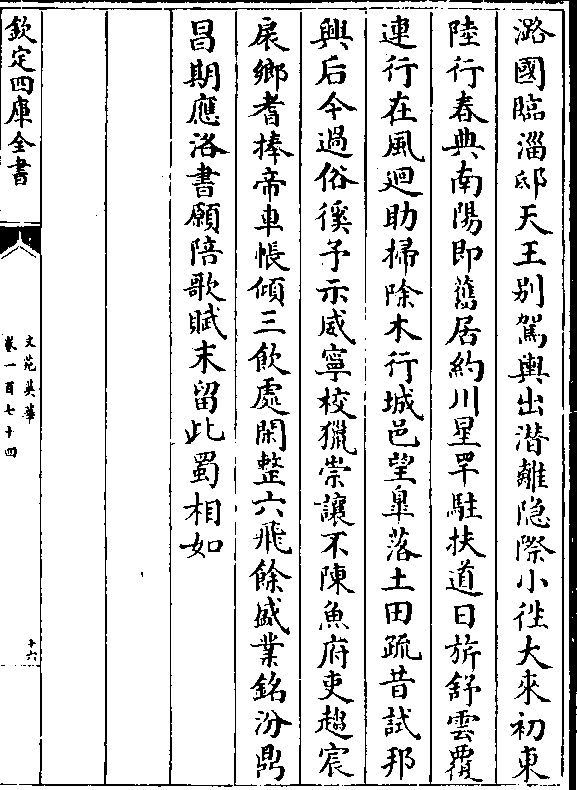 潞國臨淄邸天王别駕輿出潛離隐際小徃大來初東
陸行春典南陽即舊居約川星罕駐扶道日旂舒雲覆
連行在風迴助掃除木行城邑望臯落土田疏昔試邦
興后今過俗徯予示威寧校獵崇讓不陳魚府吏趍宸
扆鄉耆捧帝車帳傾三飲處閑整六飛餘盛業銘汾鼎
昌期應洛書願陪歌賦末留此蜀相如
欽定四庫全書
文苑英華
卷一百七十四
十六